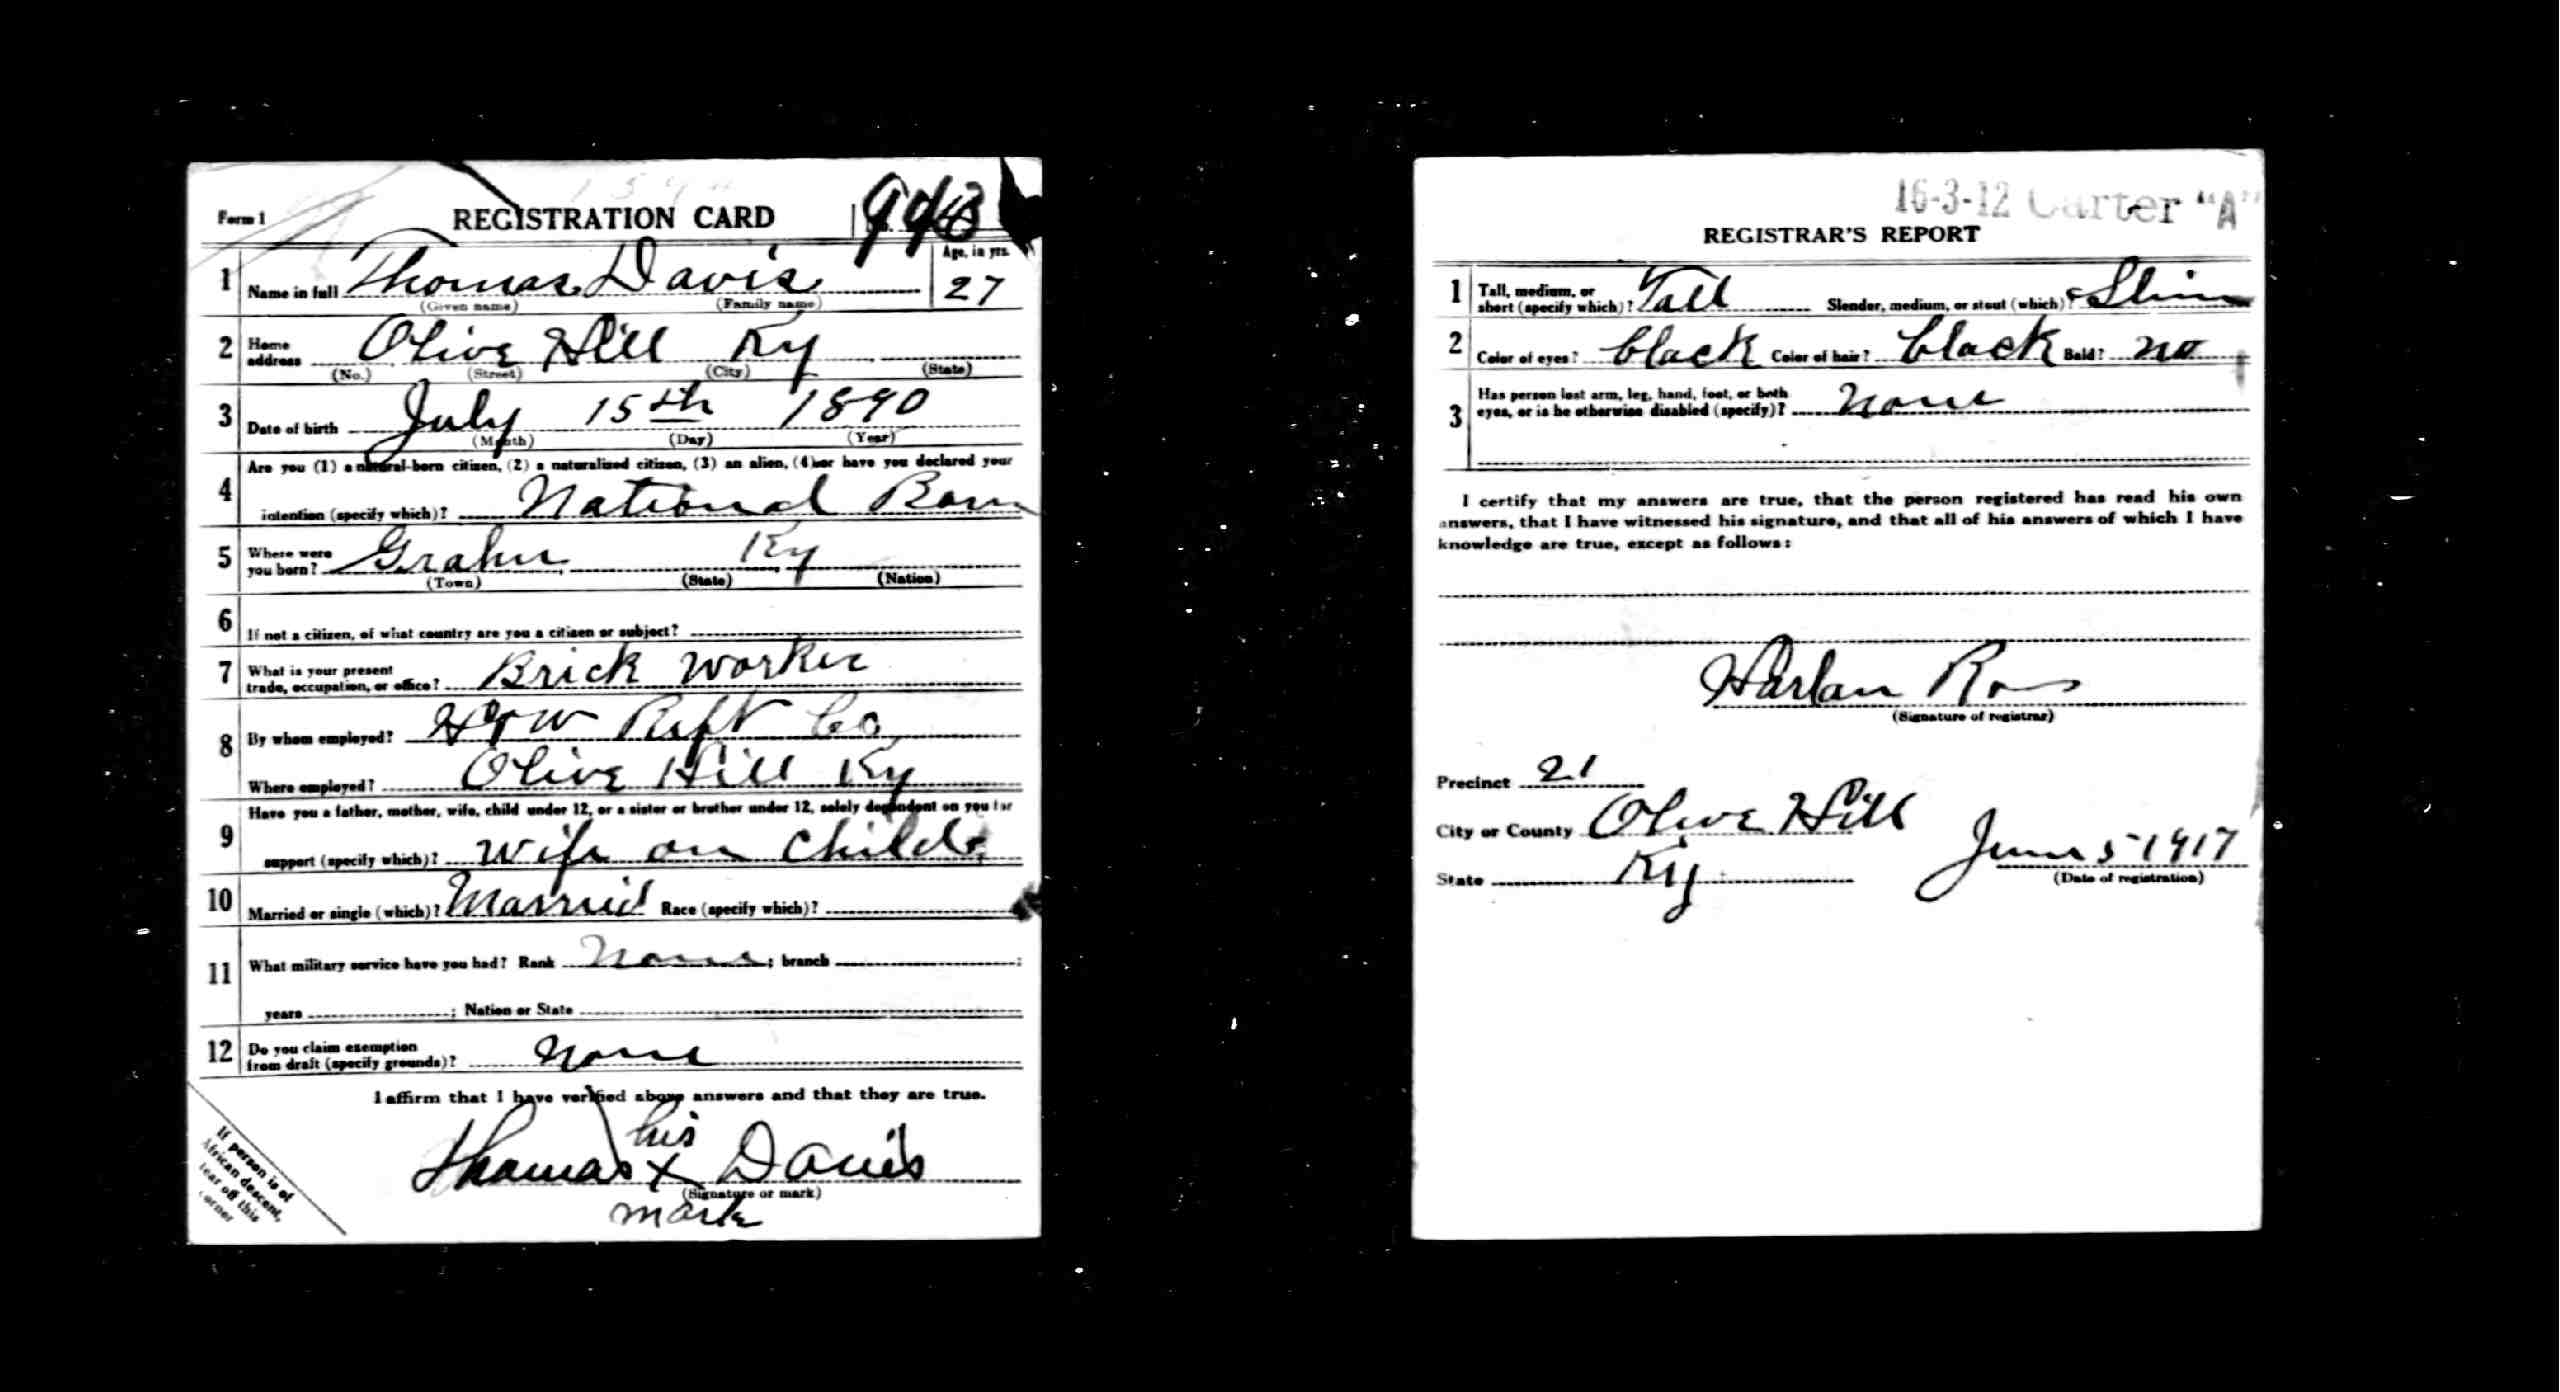 Form 1
REGISTRATION CARD
1 Name in full Thomas Davis Age, in yrs. 27
(Given name) (Family name)
2 Home address Olive Hill Ky
(No.) (Street) (City) (State)
3 Date of birth July 15th 1890
(Month) (Day) (Year)
Are you (1) a natural-born citizen, (2) a naturalized citizen, (3) an alien, (4) or have you declared your
4 intention (specify which)? National Born
5 Where were you born? Grahn Ky
(Town) (State) (Nation)
6 If not a citizen, of what country are you a citizen or subject?
7 What is your present trade, occupation, or office? Brick worker
8 By whom employed? H & W Reft Co
Where employed? Olive Hill Ky
Have you a father, mother, wife, child under 12, or a sister or brother under 12, solely dependent on you for
9 support (specify which)? wife an child
10 Married or single (which)? Married Race (specify which)?
11 What military service have you had? Rank None; branch ;
years ; Nation or State
12 Do you claim exemption from draft (specify grounds)? None
I affirm that I have verified above answers and that they are true.
his
Thomas X Davis
(Signature or mark)
mark
If person is of
African descent,
tear off this
corner
16-3-12 Carter "A"
REGISTRAR'S REPORT
1 Tall, medium, or short (specify which)? Tall Slender, medium, or stout (which)? Slim
2 Color of eyes? black Color of hair? black Bald? no
3 Has person lost arm, leg, hand, foot, or both eyes, or is he otherwise disabled (specify)? None
I certify that my answers are true, that the person registered has read his own
answers, that I have witnessed his signature, and that all of his answers of which I have
knowledge are true, except as follows:
Harlan Ros
(Signature of registrar)
Precinct 21
City or County Olive Hill
State Ky June 5 1917
(Date of registration)